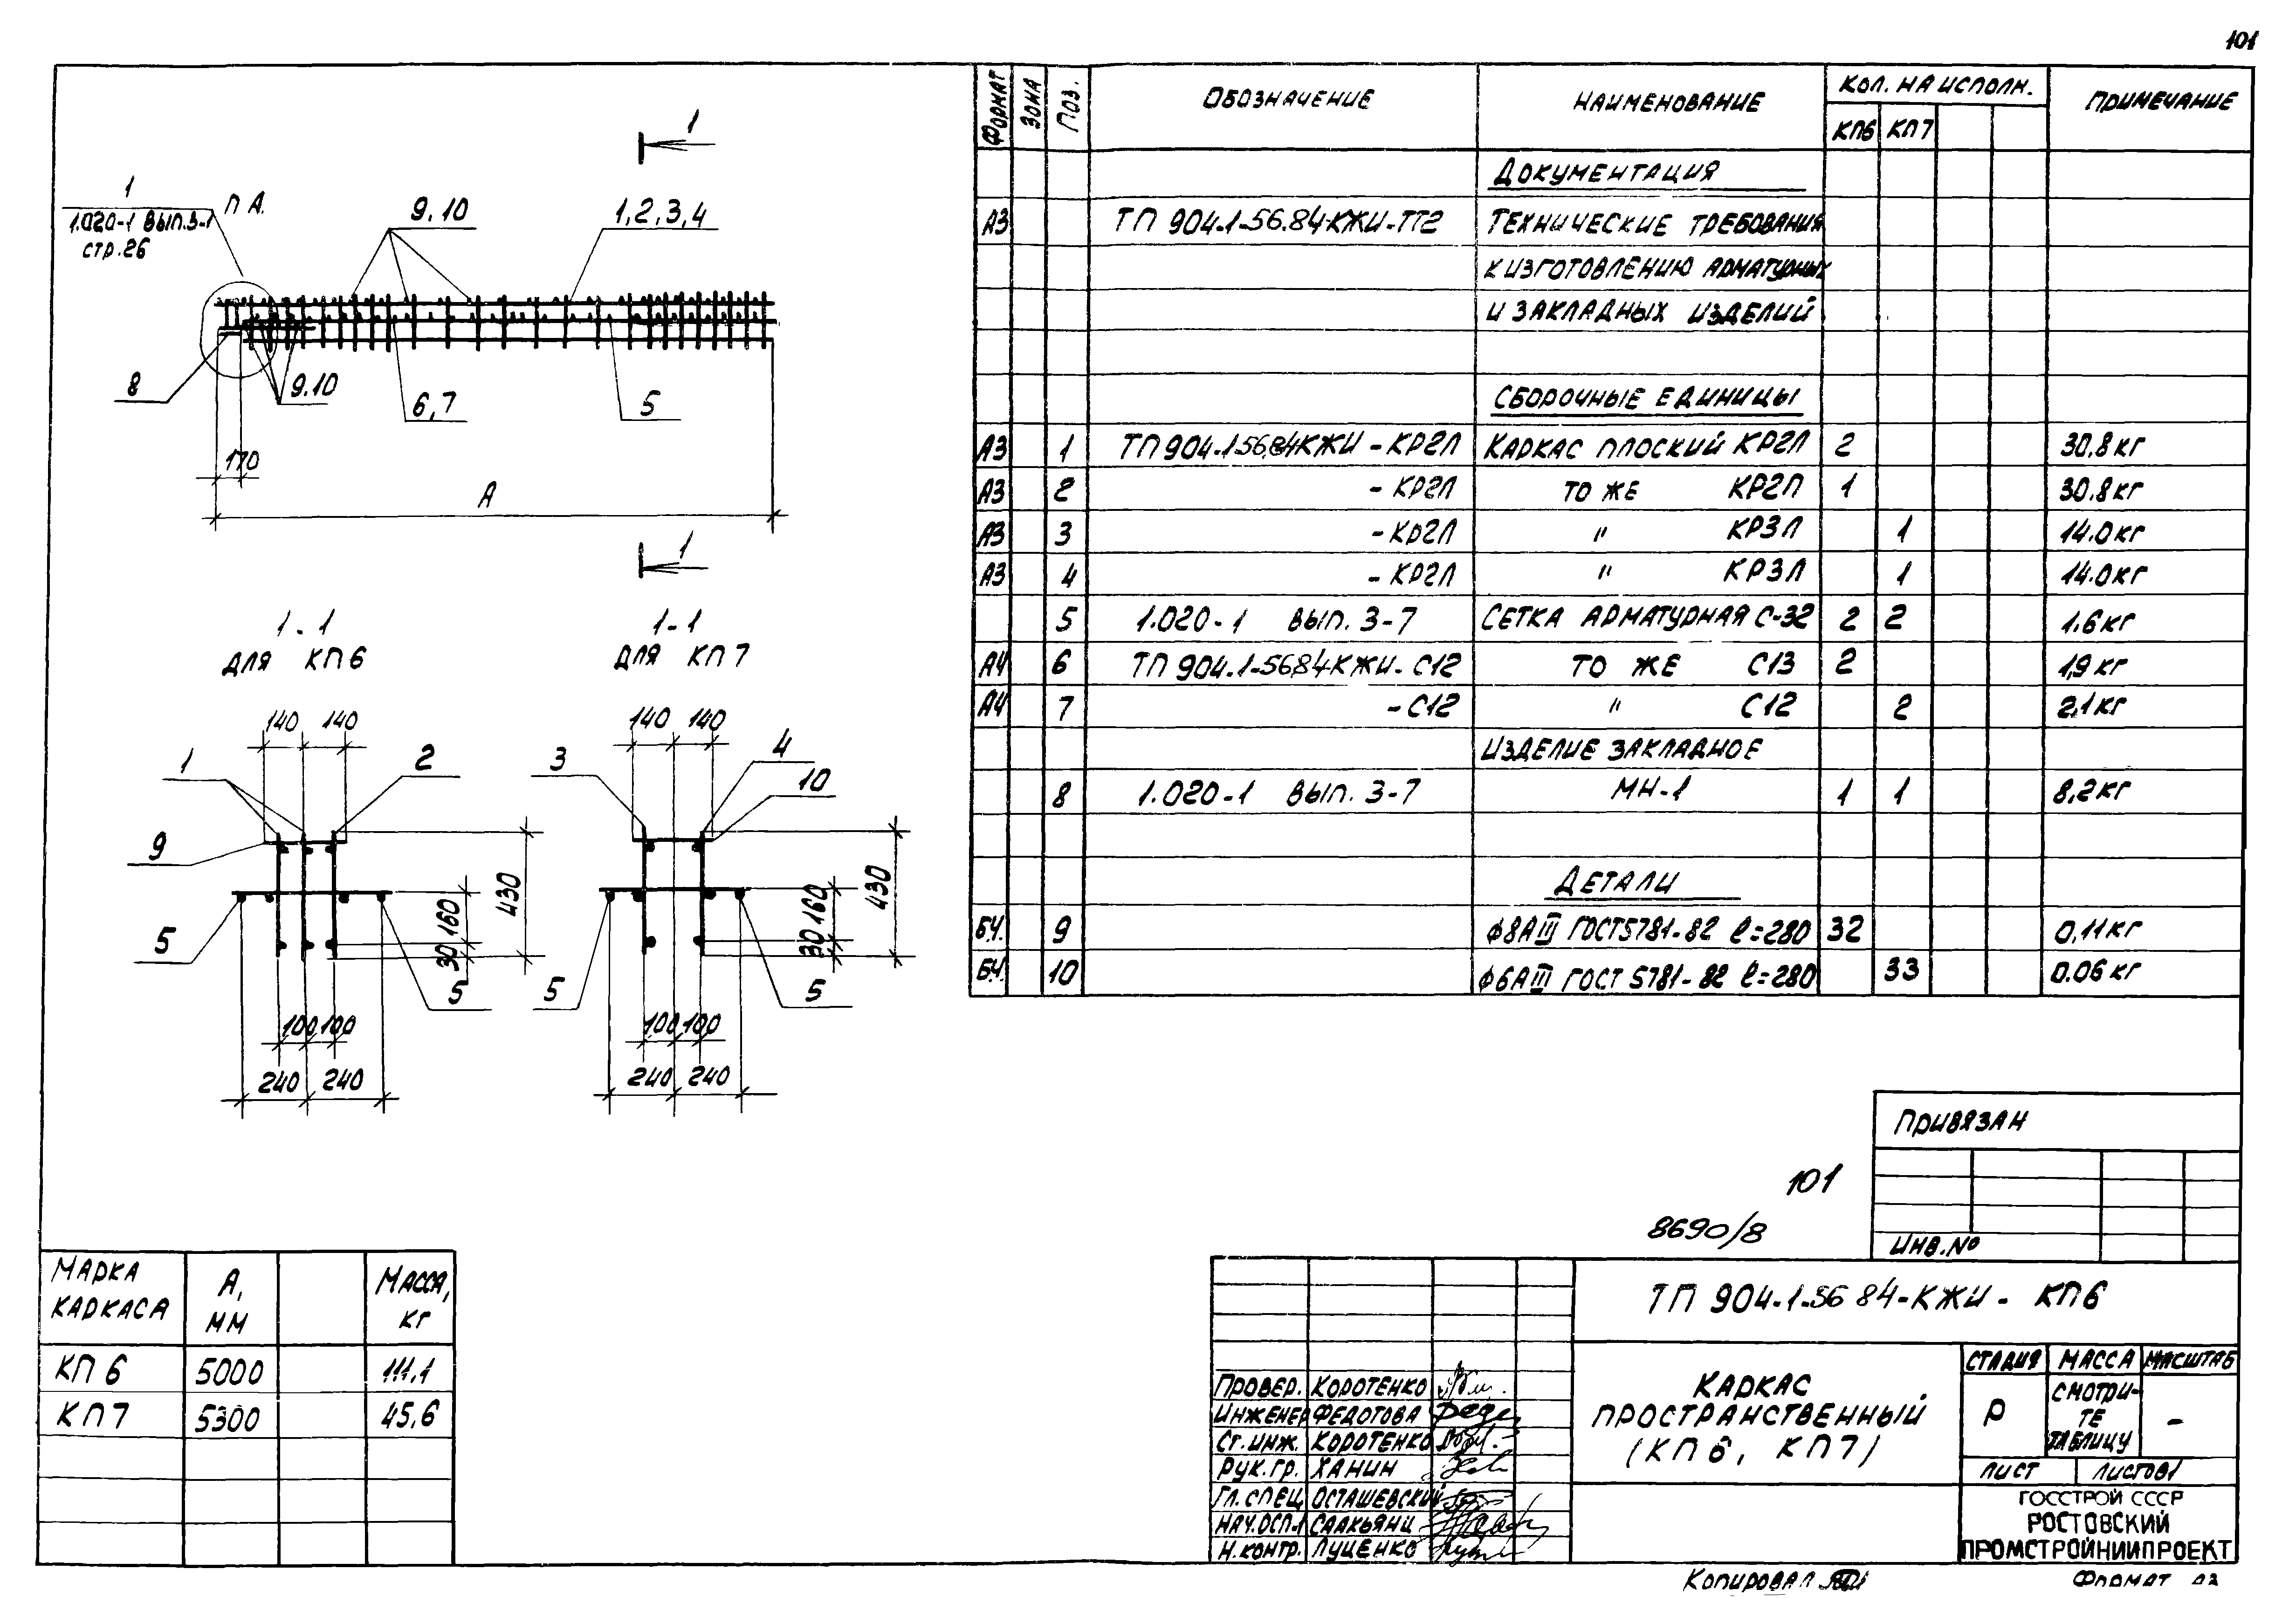 101
1
1
1.020-1 ВЫП.3-1
стр.26
П А.
9,10
1,2,3,4
8
9.10
6,7
5
170
А
1
1-1
ДЛЯ КП6
1-1
ДЛЯ КП7
140 140
140 140
1
2
3
4
10
9
5
5
5
5
430
160
30
430
160
30
100 100
100 100
240 240
240 240
ФОРМАТ
ЗОНА
ПОЗ.
ОБОЗНАЧЕНИЕ
НАИМЕНОВАНИЕ
КОЛ. НА ИСПОЛН.
ПРИМЕЧАНИЕ
КП6 КП7
ДОКУМЕНТАЦИЯ
А3 ТП 904-1-56.84-КЖИ-ТТ2 ТЕХНИЧЕСКИЕ ТРЕБОВАНИЯ
К ИЗГОТОВЛЕНИЮ АРМАТУРНЫХ
И ЗАКЛАДНЫХ ИЗДЕЛИЙ
СБОРОЧНЫЕ ЕДИНИЦЫ
А3 1 ТП904-1-56.84КЖИ-КР2Л КАРКАС ПЛОСКИЙ КР2Л 2 30.8кг
А3 2 -КР2Л ТО ЖЕ КР2П 1 30.8кг
А3 3 -КР2Л " КР3Л 1 14.0кг
А3 4 -КР2Л " КР3Л 1 14.0кг
5 1.020-1 ВЫП. 3-7 СЕТКА АРМАТУРНАЯ С-32 2 2 1.6кг
А4 6 ТП 904.1-56.84-КЖИ-С12 ТО ЖЕ С13 2 1,9 кг
А4 7 -С12 " С12 2 2,1кг
ИЗДЕЛИЕ ЗАКЛАДНОЕ
8 1.020-1 ВЫП. 3-7 МН-1 1 1 8,2кг
ДЕТАЛИ
БЧ. 9 ф8АIII ГОСТ5781-82 ℓ=280 32 0,11кг
БЧ. 10 ф6АIII ГОСТ 5781-82 ℓ=280 33 0.06 кг
ПРИВЯЗАН
ИНВ.№
101
8690/8
МАРКА КАРКАСА
А, ММ
МАССА, КГ
КП 6 5000 111.1
КП7 5300 45.6
ТП 904-1-56 84-КЖИ- КП6
КАРКАС
ПРОСТРАНСТВЕННЫЙ
(КП6, КП7)
СТАДИЯ МАССА МАСШТАБ
Р
СМОТРИ-
ТЕ
ТАБЛИЦУ
-
ЛИСТ ЛИСТОВ1
ГОССТРОЙ СССР
РОСТОВСКИЙ
ПРОМСТРОЙНИИПРОЕКТ
ПРОВЕР. КОРОТЕНКО
ИНЖЕНЕР ФЕДОТОВА
СТ.ИНЖ. КОРОТЕНКО
РУК.ГР. ХАНИН
ГЛ.СПЕЦ ОСТАШЕВСКИЙ
НАЧ.ОСП-1 СААКЬЯНЦ
Н.КОНТР. ЛУЦЕНКО
Копировал
ФОРМАТ А3